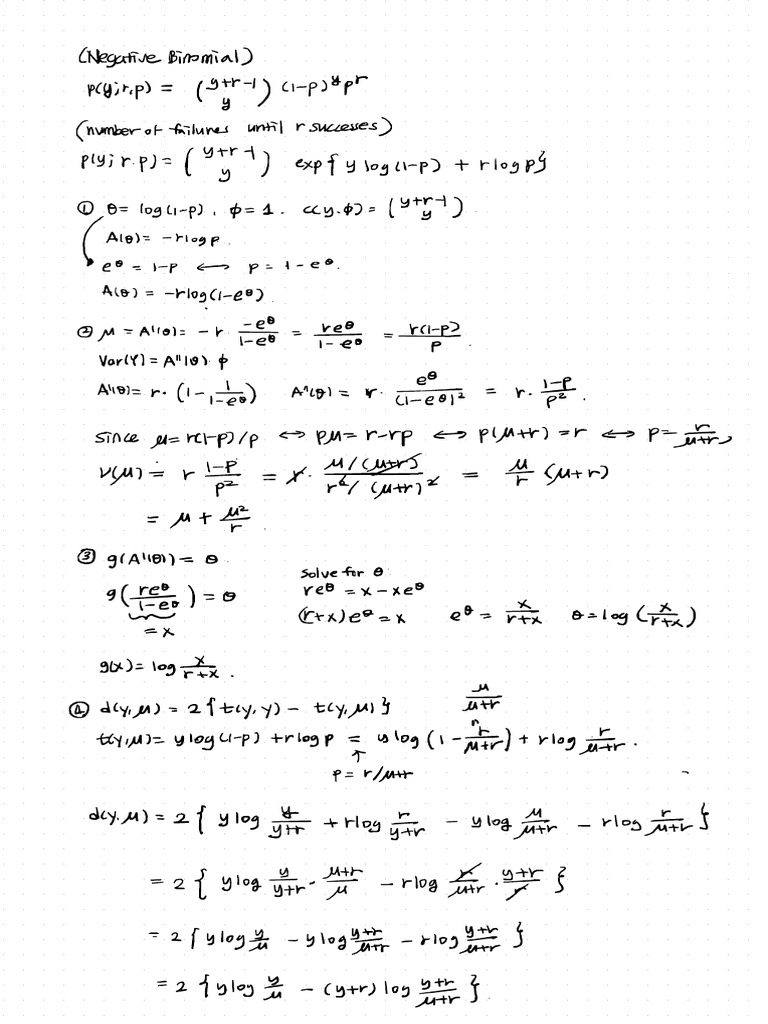 (Negative Binomial)
p(y; r, p) = (y+r-1 y) (1-p)^y p^r
(number of failures until r successes)
p(y; r. p) = (y+r-1 y) exp{ y log(1-p) + r log p }
① θ = log(1-p), φ = 1. c(y.φ) = (y+r-1 y)
A(θ) = -r log p.
e^θ = 1-p ⟷ p = 1 - e^θ.
A(θ) = -r log(1-e^θ)
② μ = A'(θ) = -r · -e^θ/(1-e^θ) = re^θ/(1-e^θ) = r(1-p)/p
Var(Y) = A''(θ) · φ
A'(θ) = r · (1 - 1/(1-e^θ)) A''(θ) = r · e^θ/(1-e^θ)^2 = r · (1-p)/p^2.
since μ = r(1-p)/p ⟷ pμ = r-rp ⟷ p(μ+r) = r ⟷ p = r/(μ+r),
V(μ) = r (1-p)/p^2 = r · (μ/(μ+r))/(r^2/(μ+r)^2) = μ/r (μ+r)
= μ + μ^2/r.
③ g(A'(θ)) = θ
solve for θ
g(re^θ/(1-e^θ)) = θ re^θ = x - xe^θ
= x (r+x)e^θ = x e^θ = x/(r+x) θ = log(x/(r+x))
g(x) = log x/(r+x).
④ d(y, μ) = 2{t(y, y) - t(y, μ)} μ/(μ+r)
t(y, μ) = y log(1-p) + r log p = y log(1 - r/(μ+r)) + r log r/(μ+r).
↑
p = r/μ+r
d(y. μ) = 2{ y log y/(y+r) + r log r/(y+r) - y log μ/(μ+r) - r log r/(μ+r) }
= 2{ y log y/(y+r) · (μ+r)/μ - r log r/(μ+r) · (y+r)/r }
= 2{ y log y/μ - y log (y+r)/(μ+r) - r log (y+r)/(μ+r) }
= 2{ y log y/μ - (y+r) log (y+r)/(μ+r) }